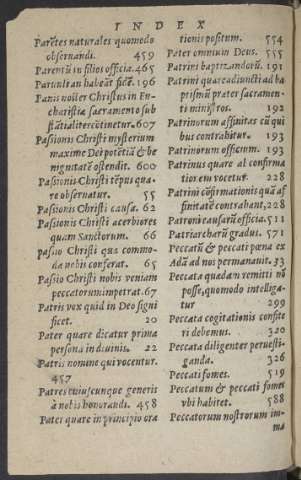 INDEX
Parẽtes naturales quomodo
obseruandi. 459
Parentũ in filios officia. 465
Paruuli an habeãt fidẽ. 196
Panis noster Christus in Eu-
charistia, sacramento sub
stãtialiter cõtinetur. 607
Passionis Christi mysterium
maxime Dei potẽtiã & be
nignitatẽ ostendit. 600
Passionis Christi tẽpus qua-
re obseruatur. 55
Passionis Christi causa. 62
Passionis Christi acerbiores
quam Sanctorum. 66
Passio Christi quæ commo-
da nobis conferat. 65
Passio Christi nobis veniam
peccatorum impetrat. 67
Patris vox quid in Deo signi
ficet. 20
Pater quare dicatur prima
persona in diuinis. 22
Patris nomine qui vocentur.
457
Patres cuiuscunque generis
à nobis honorandi. 458
Pater quare in principio ora
tionis positum. 554
Pater omnium Deus. 555
Patrini baptizandorũ. 191
Patrini quare adiuncti ad ba
ptismũ præter sacramen-
ti ministros. 192
Patrinorum affinitas cũ qui
bus contrahitur. 193
Patrinorum officium. 193
Patrinus quare ad confirma
tionem vocetur. 228
Patrini cõfirmationis quã af
finitatẽ contrabant, 228
Patroni causarũ officia. 511
Patriarcharũ gradus. 571
Peccatũ & peccati pœna ex
Adã ad nos permanauit. 33
Peccata quædam remitti nõ
posse, quomodo intelliga-
tur 299
Peccata cogitationis confite
ri debemus. 320
Peccata diligenter peruesti-
ganda. 326
Peccati fomes. 519
Peccatum & peccati fomes
vbi habitet. 588
Peccatorum nostrorum im-
ma